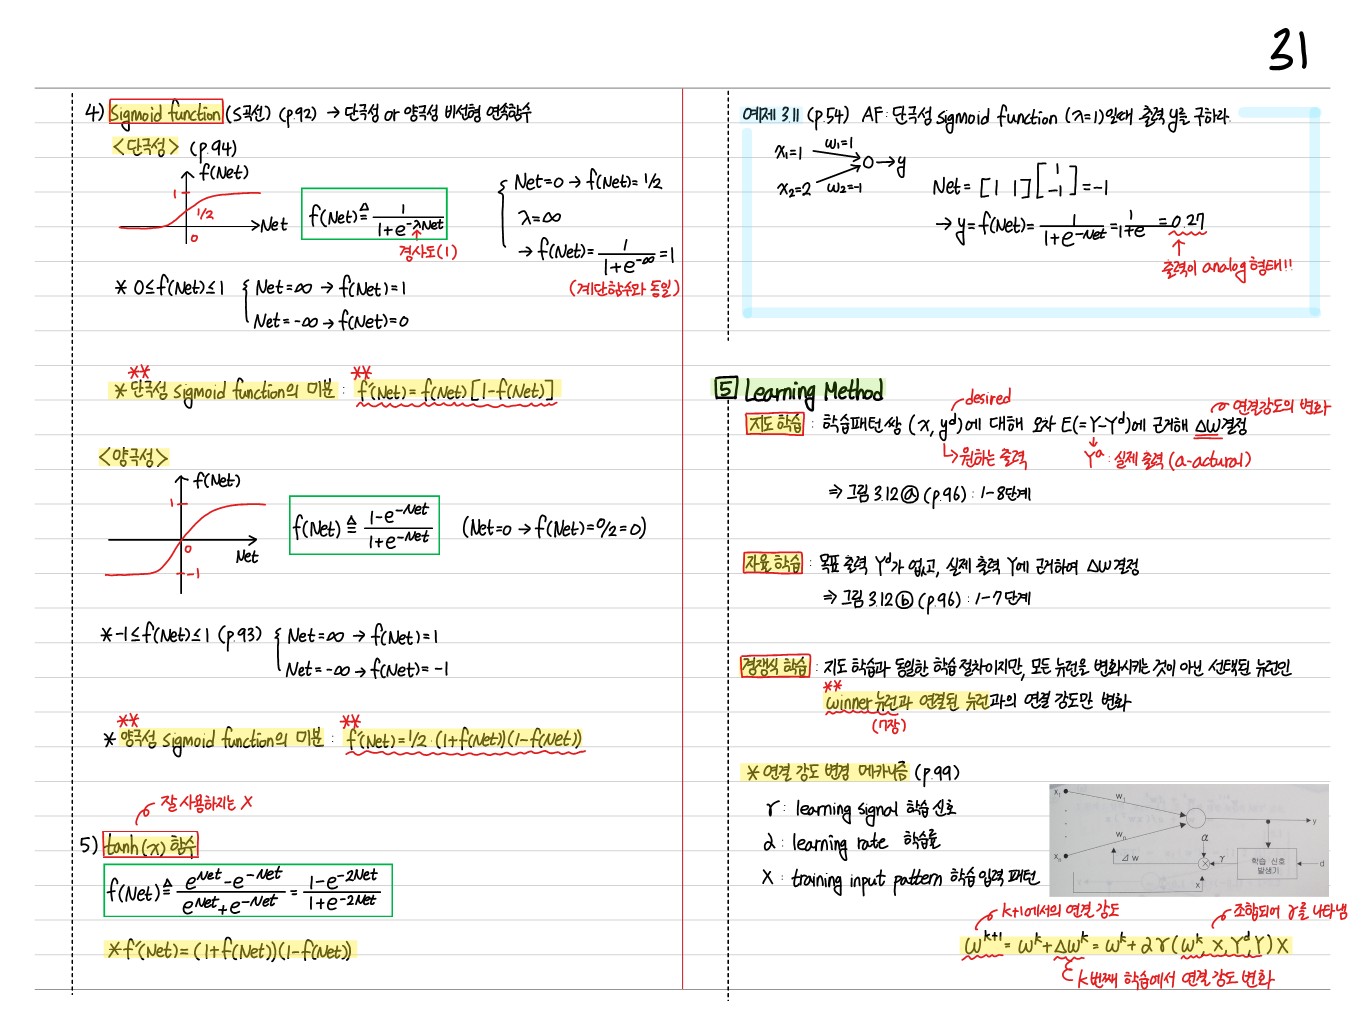 31
4) Sigmoid function (S곡선) (p.92) → 단극성 or 양극성 비선형 연속함수
<단극성> (p.94)
f(Net)
1
1/2
0
Net
f(Net) ≜ 1/(1+e^-λNet)
경사도(1)
Net=0 → f(Net)=1/2
λ=∞
→ f(Net)= 1/(1+e^-∞) =1
(계단함수와 동일)
* 0≤f(Net)≤1 { Net=∞ → f(Net)=1
Net=-∞ → f(Net)=0
**
**
* 단극성 sigmoid function의 미분 : f'(Net)= f(Net)[1-f(Net)]
<양극성>
f(Net)
1
0
Net
-1
f(Net) ≜ (1-e^-Net)/(1+e^-Net) (Net=0 → f(Net)=0/2=0)
* -1≤f(Net)≤1 (p.93) { Net=∞ → f(Net)=1
Net=-∞ → f(Net)= -1
**
**
* 양극성 sigmoid function의 미분 : f'(Net)=1/2·(1+f(Net))(1-f(Net))
잘 사용하지는 X
5) tanh(x) 함수
f(Net) ≜ (e^Net - e^-Net)/(e^Net + e^-Net) = (1-e^-2Net)/(1+e^-2Net)
* f'(Net)= (1+f(Net))(1-f(Net))
예제 3.11 (p.54) AF: 단극성 sigmoid function (λ=1)일때 출력 y를 구하라.
x₁=1 w₁=1
→y
x₂=2 w₂=-1
Net= [1 1] [1 -1] = -1
→ y=f(Net)= 1/(1+e^-Net) = 1/(1+e) = 0.27
출력이 analog 형태!!
5 Learning Method
desired
연결강도의 변화
지도 학습 : 학습패턴 쌍 (x, y^d)에 대해 오차 E(=Y-Y^d)에 근거해 ΔW결정
원하는 출력
Y^a : 실제 출력 (a-actural)
⇒ 그림 3.12 ⓐ (p.96) : 1-8단계
자율 학습 : 목표 출력 Y^d가 없고, 실제 출력 Y에 근거하여 ΔW 결정
⇒ 그림 3.12 ⓑ (p.96) : 1-7단계
경쟁식 학습 : 지도 학습과 동일한 학습 절차이지만, 모든 뉴런을 변화시키는 것이 아닌 선택된 뉴런인
**
winner 뉴런과 연결된 뉴런과의 연결 강도만 변화
(7장)
* 연결 강도 변경 메카니즘 (p.99)
r : learning signal 학습 신호
α : learning rate 학습률
X : training input pattern 학습 입력 패턴
x₁
w₁
wₙ
xₙ
y
α
Δw
r
학습 신호
발생기
d
x
k+1에서의 연결 강도
조합되어 r를 나타냄
w^k+1 = w^k + Δw^k = w^k + α r (w^k, X, Y^d, Y) X
k번째 학습에서 연결 강도 변화